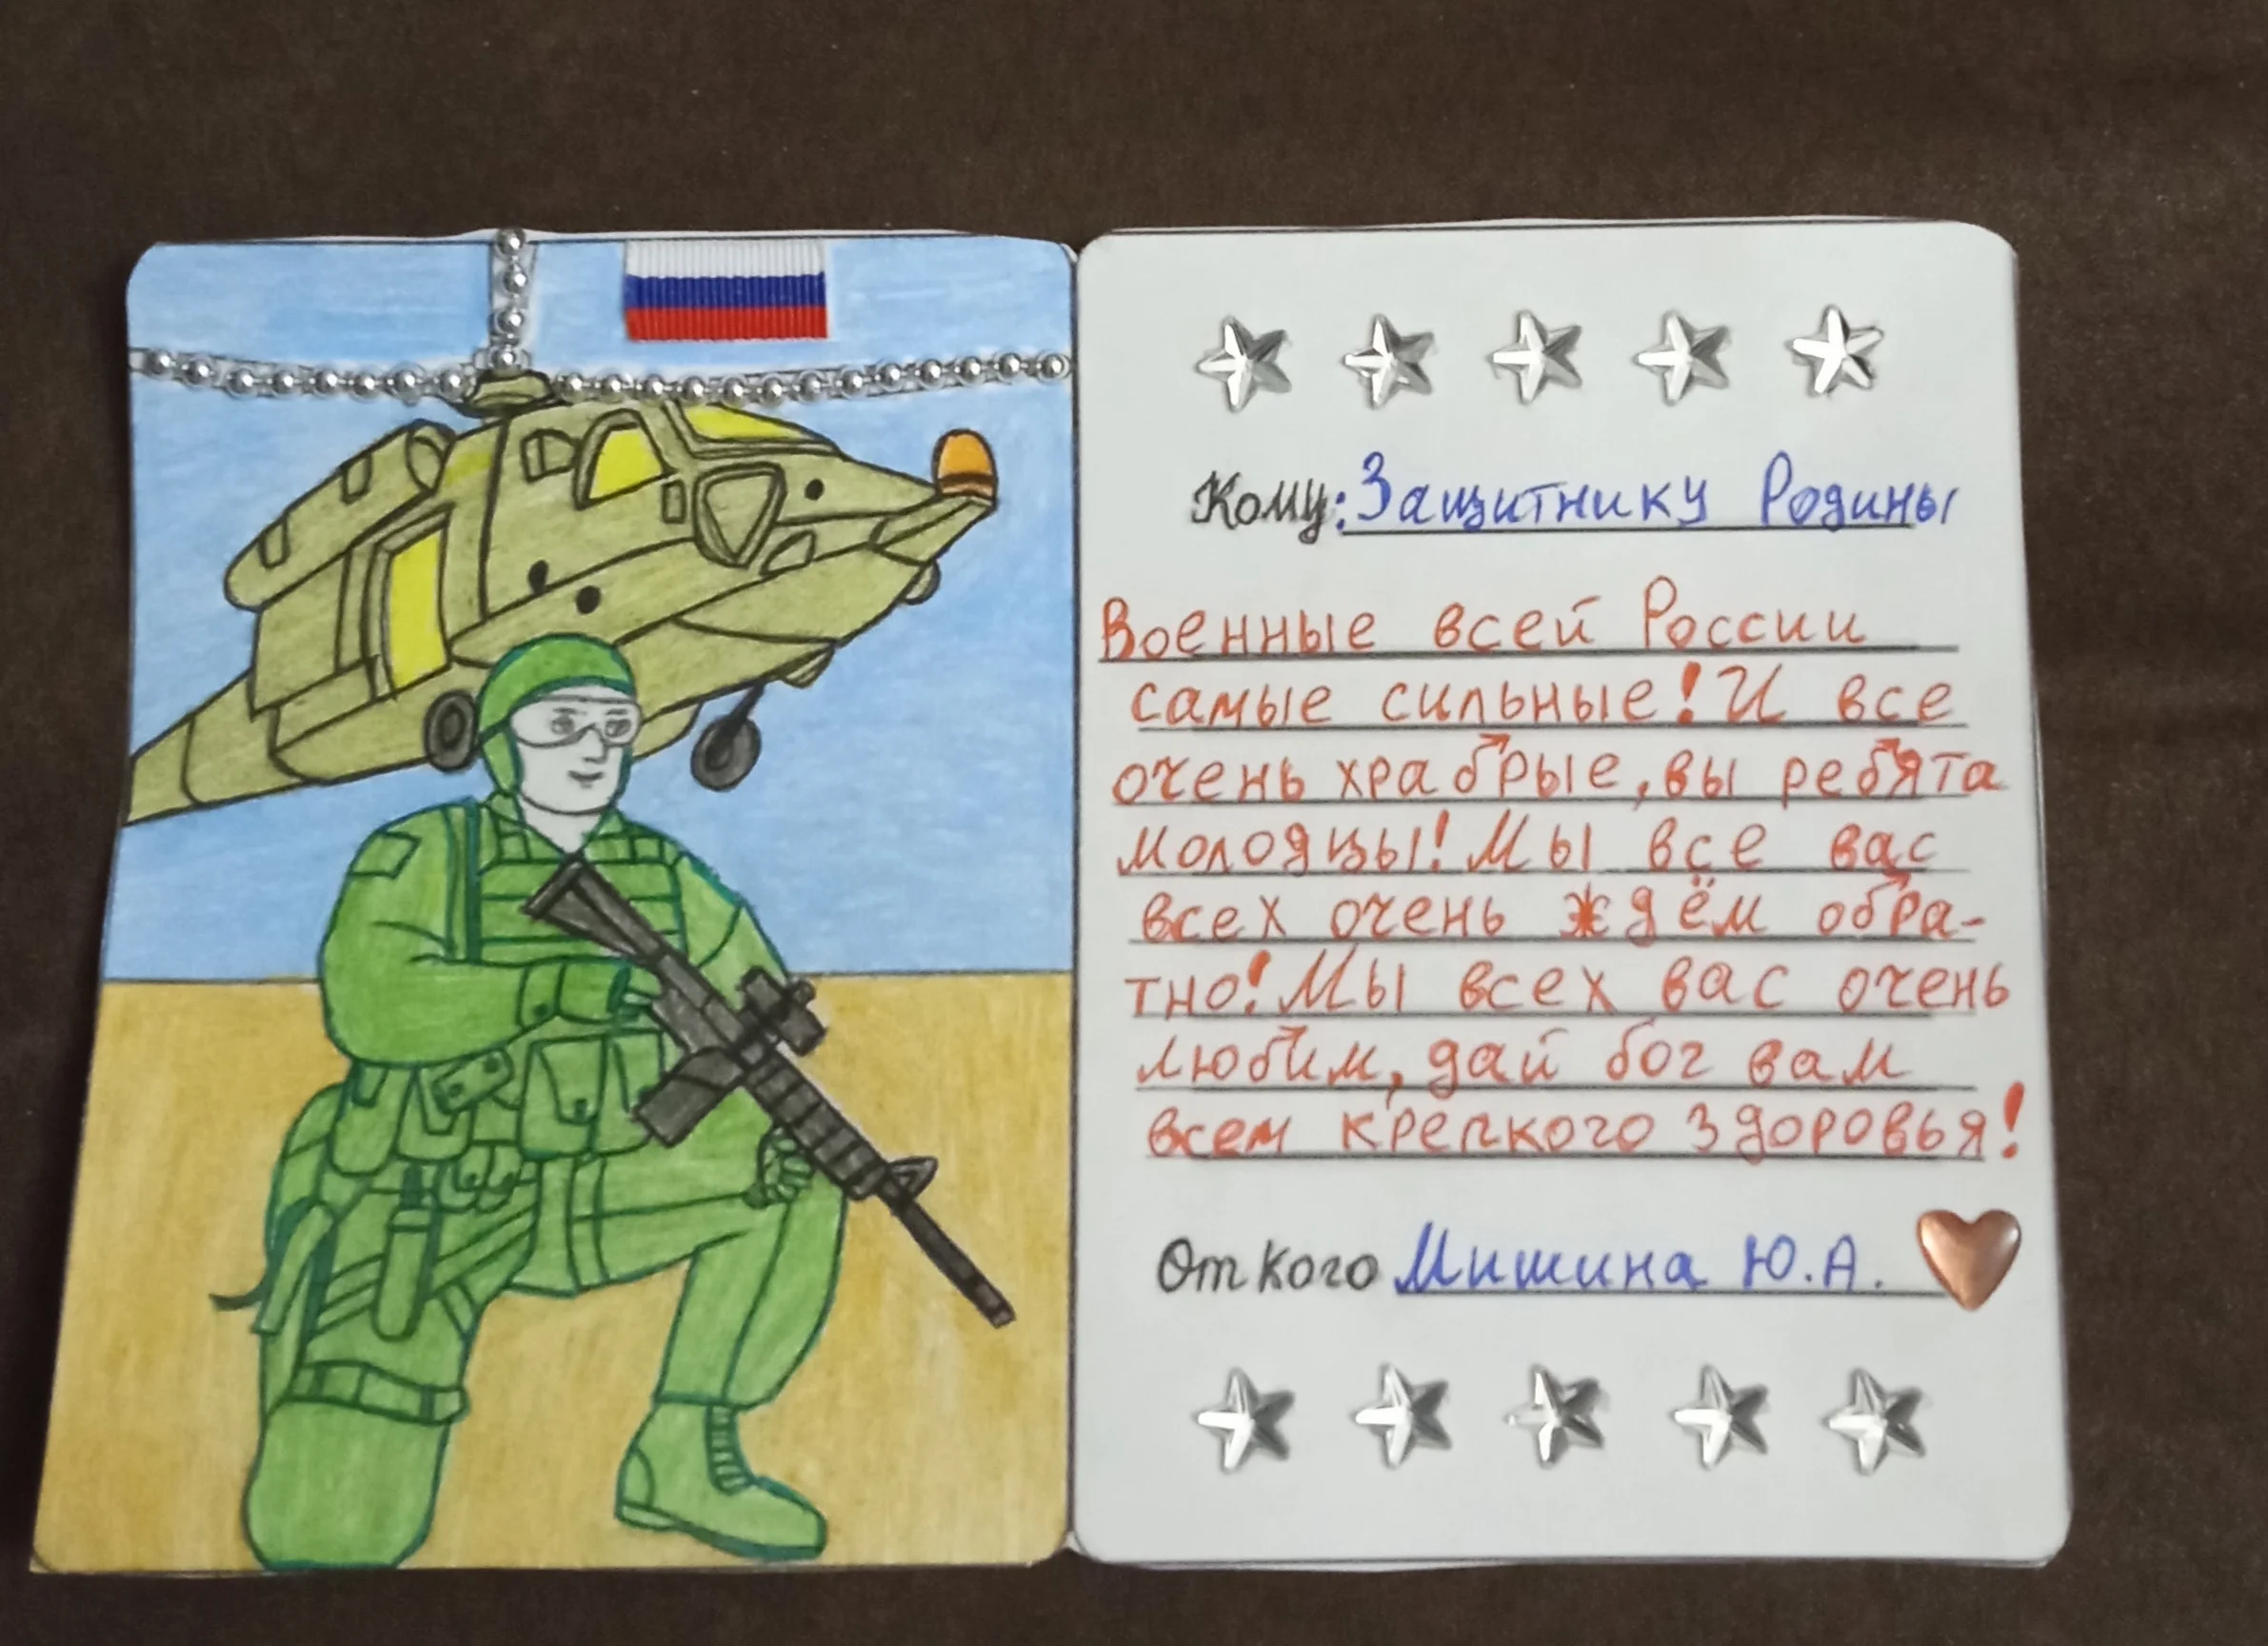 Кому: Защитнику Родины
Военные всей России
самые сильные! И все
очень храбрые, вы ребята
молодцы! Мы все вас
всех очень ждём обра-
тно! Мы всех вас очень
любим, дай бог вам
всем крепкого здоровья!
От кого Мишина Ю.А.